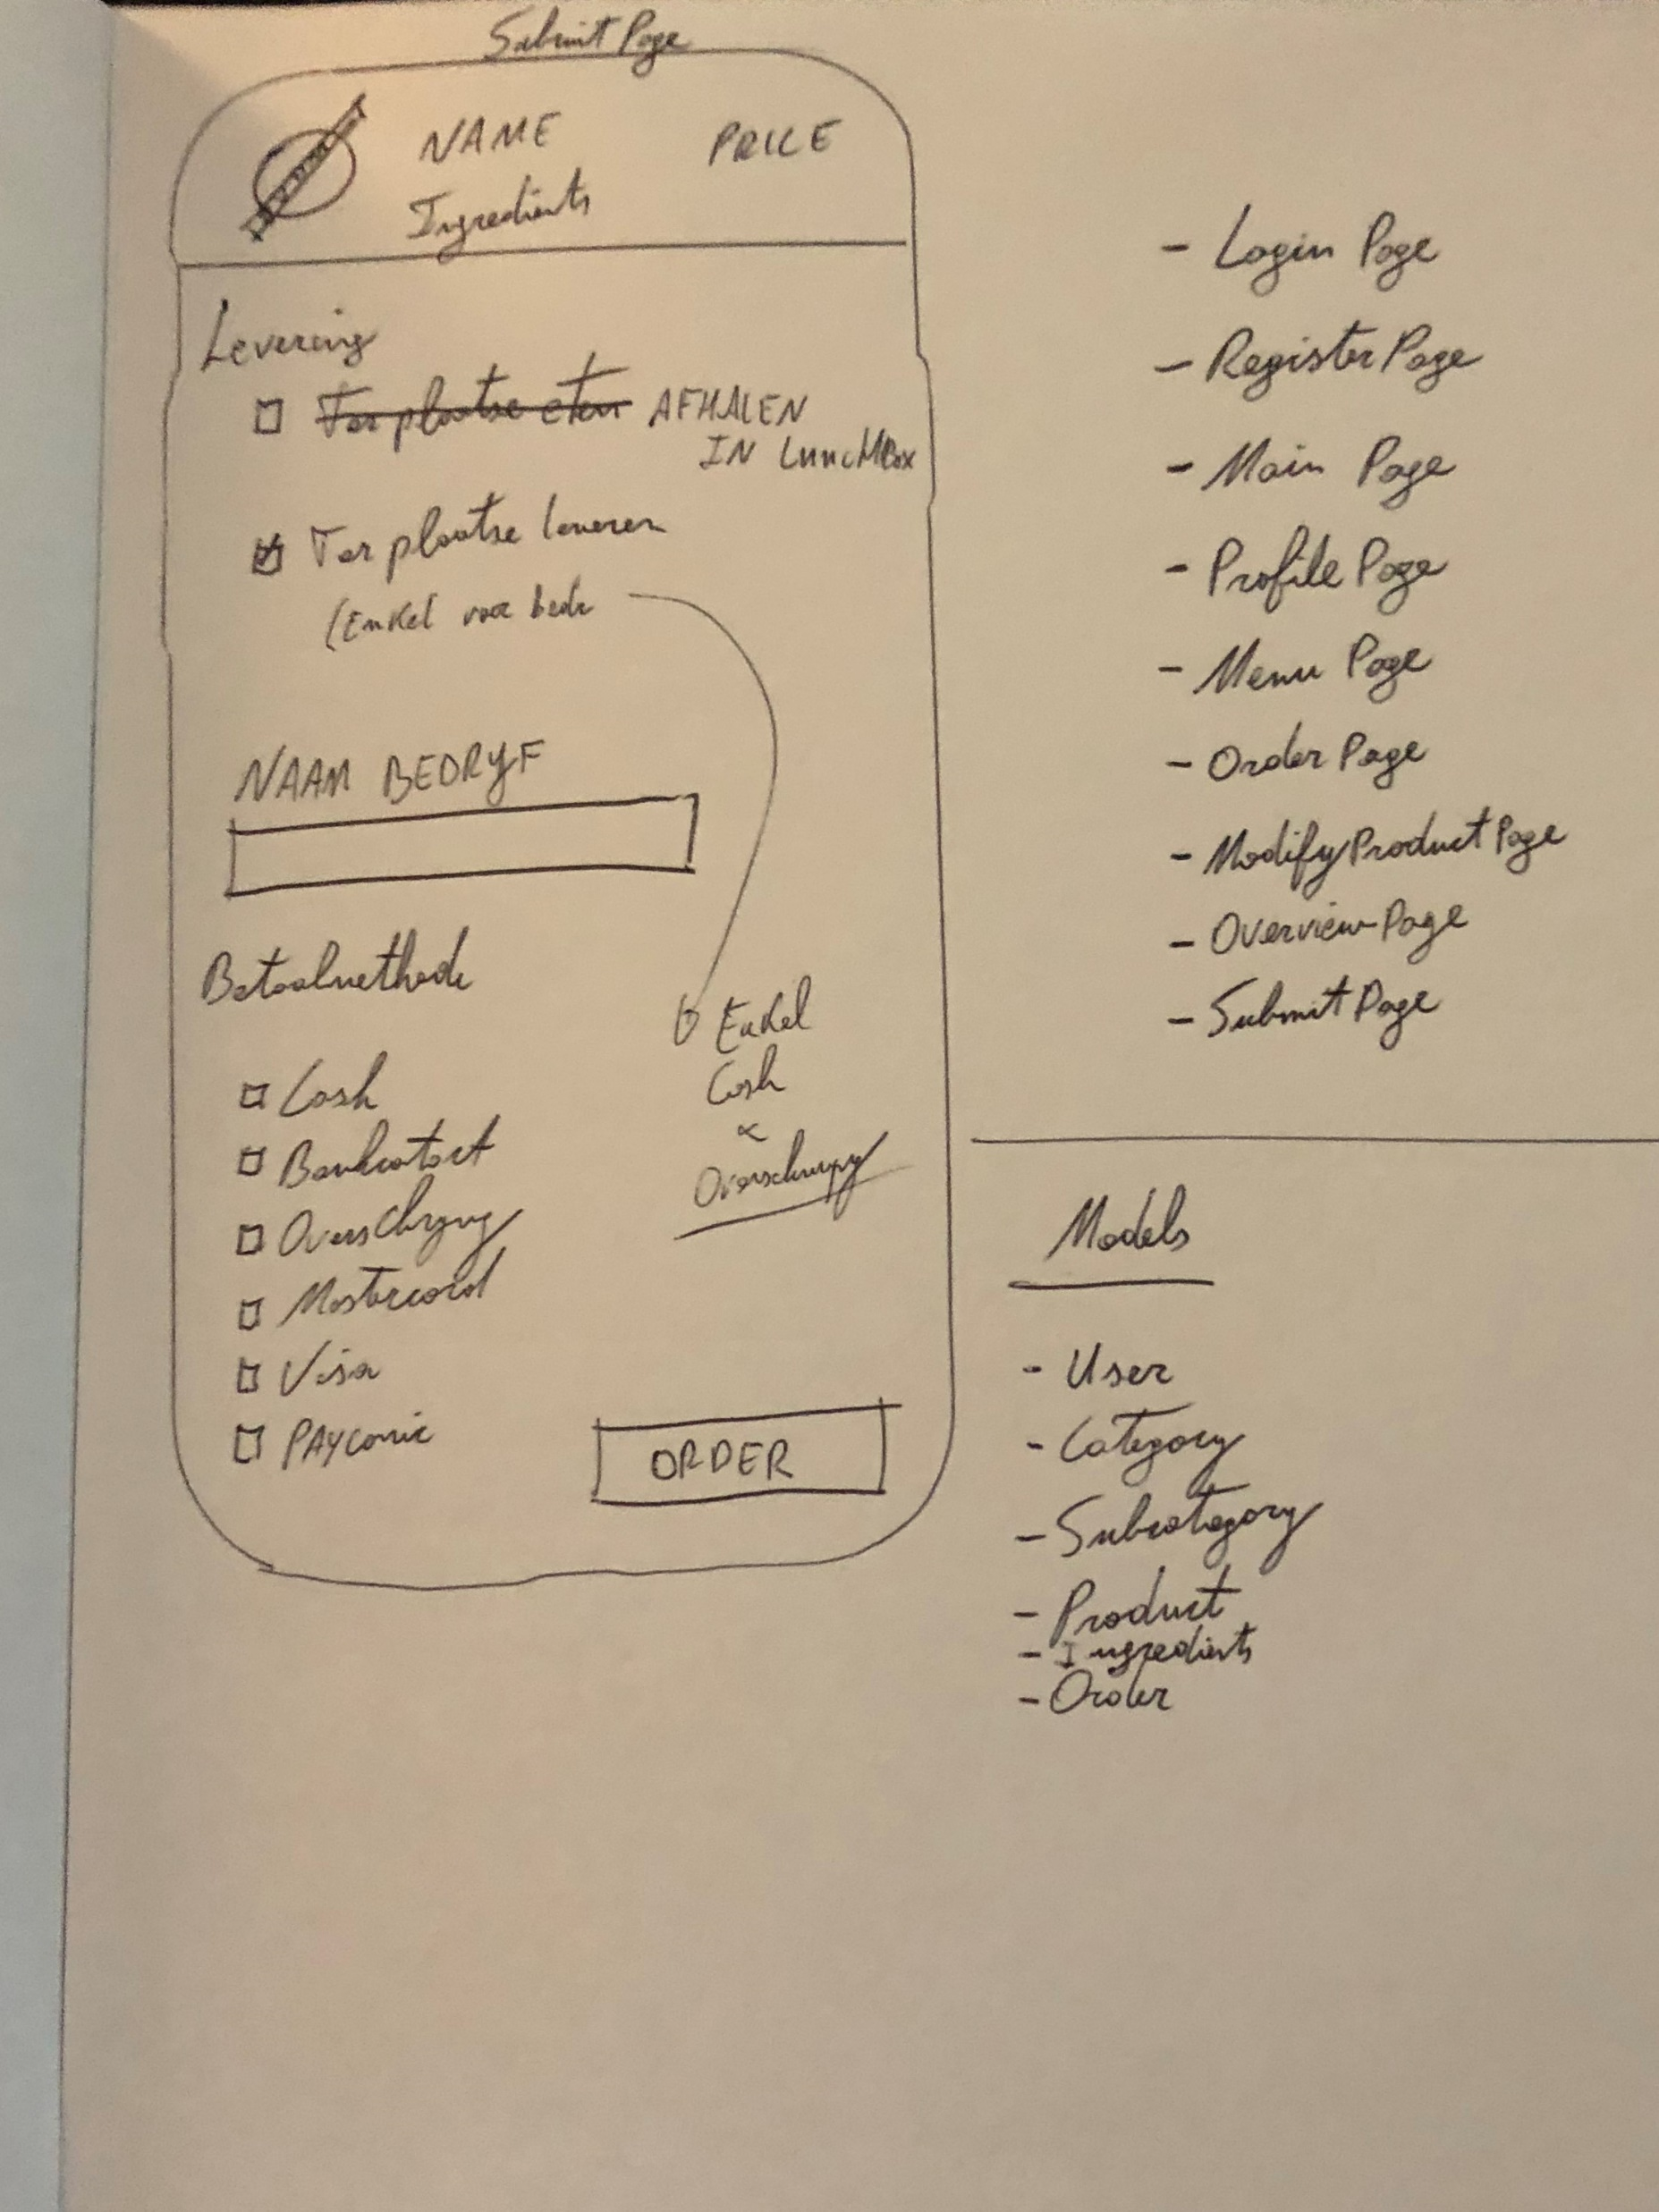 Submit Page
NAME PRICE
Ingredients
Levering
Ter plaatse eten AFHALEN
IN LUNCHBox
Ter plaatse leveren
(Enkel voor bedr
NAAM BEDRYF
Betaalmethode
Enkel
Cash
Cash
Bankcontact
Overschryving
Mastercard
Visa
PAYconic
ORDER
- Login Page
- Register Page
- Main Page
- Profile Page
- Menu Page
- Order Page
- Modify Product Page
- Overview Page
- Submit Page
Models
- User
- Category
- Subcategory
- Product
- Ingredients
- Order